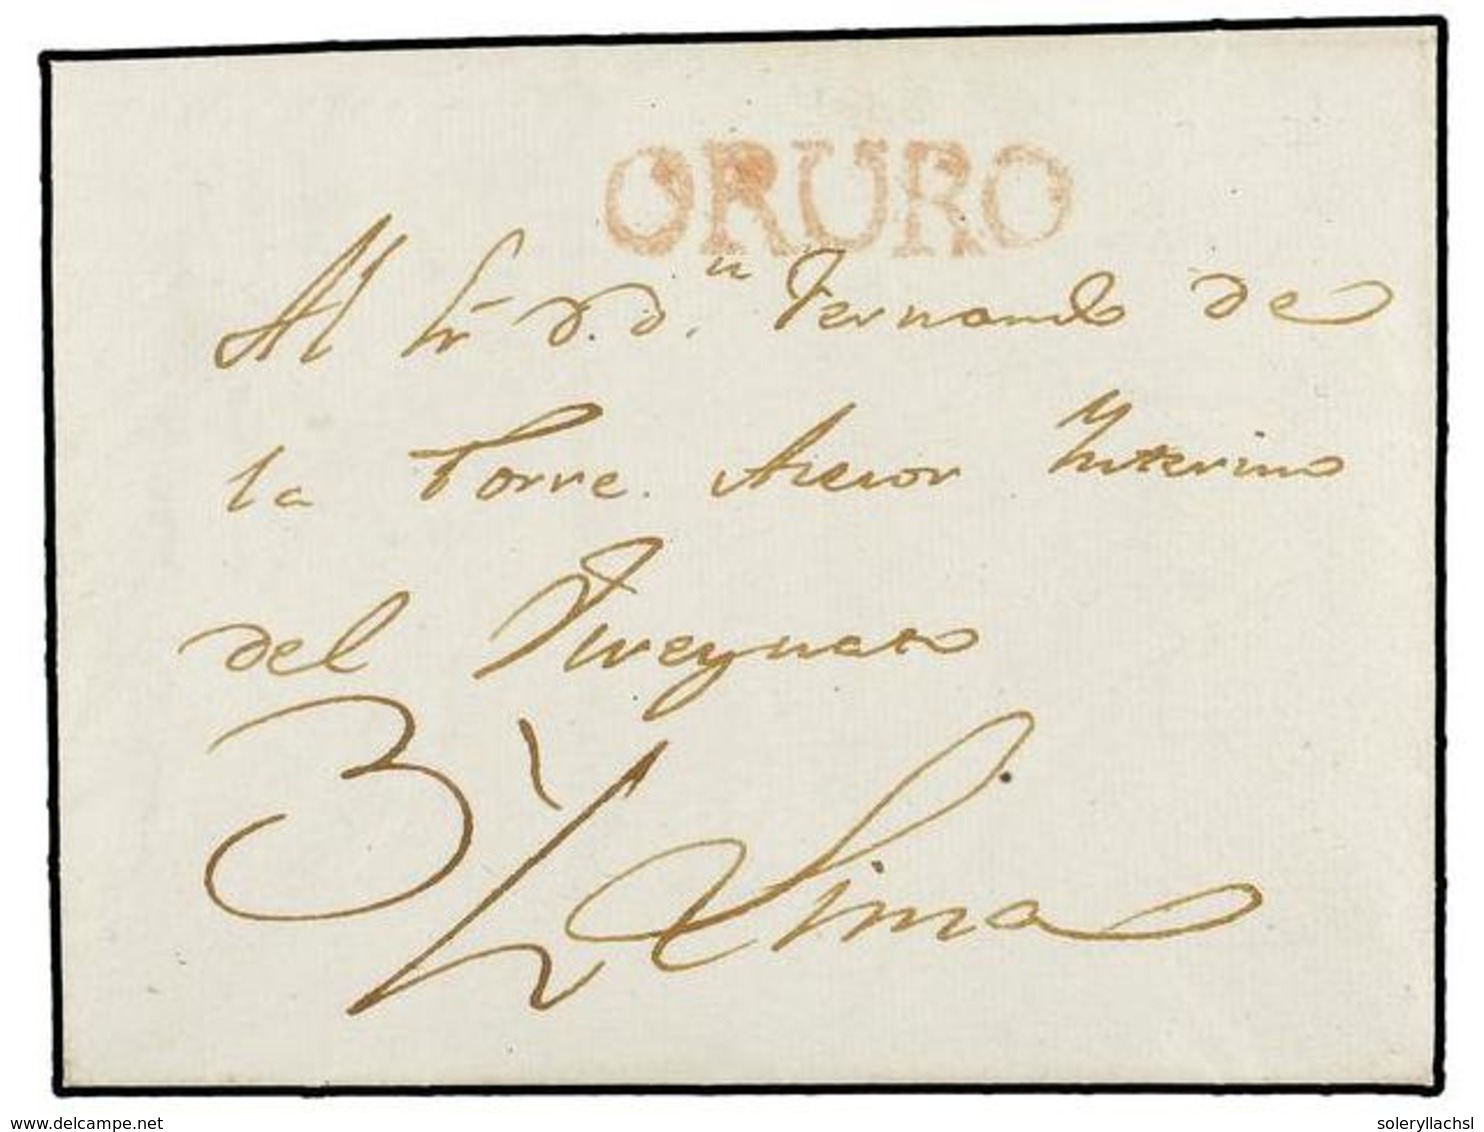 ORURO
Al Sr. D. Dn. Fernando de
la Torre. Asesor Ynterino
del Vireynato
3½ Lima
www.delcampe.net
soleryllachsl